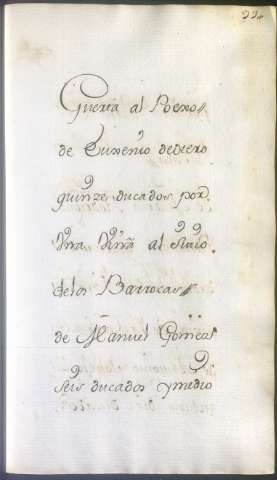 22.
Guerta al Poexo
de Eugenio dexero
quinze ducados por
Una Viña al Sitio
delos Barrocas
de Manuel Gomez
seis ducados ymedio